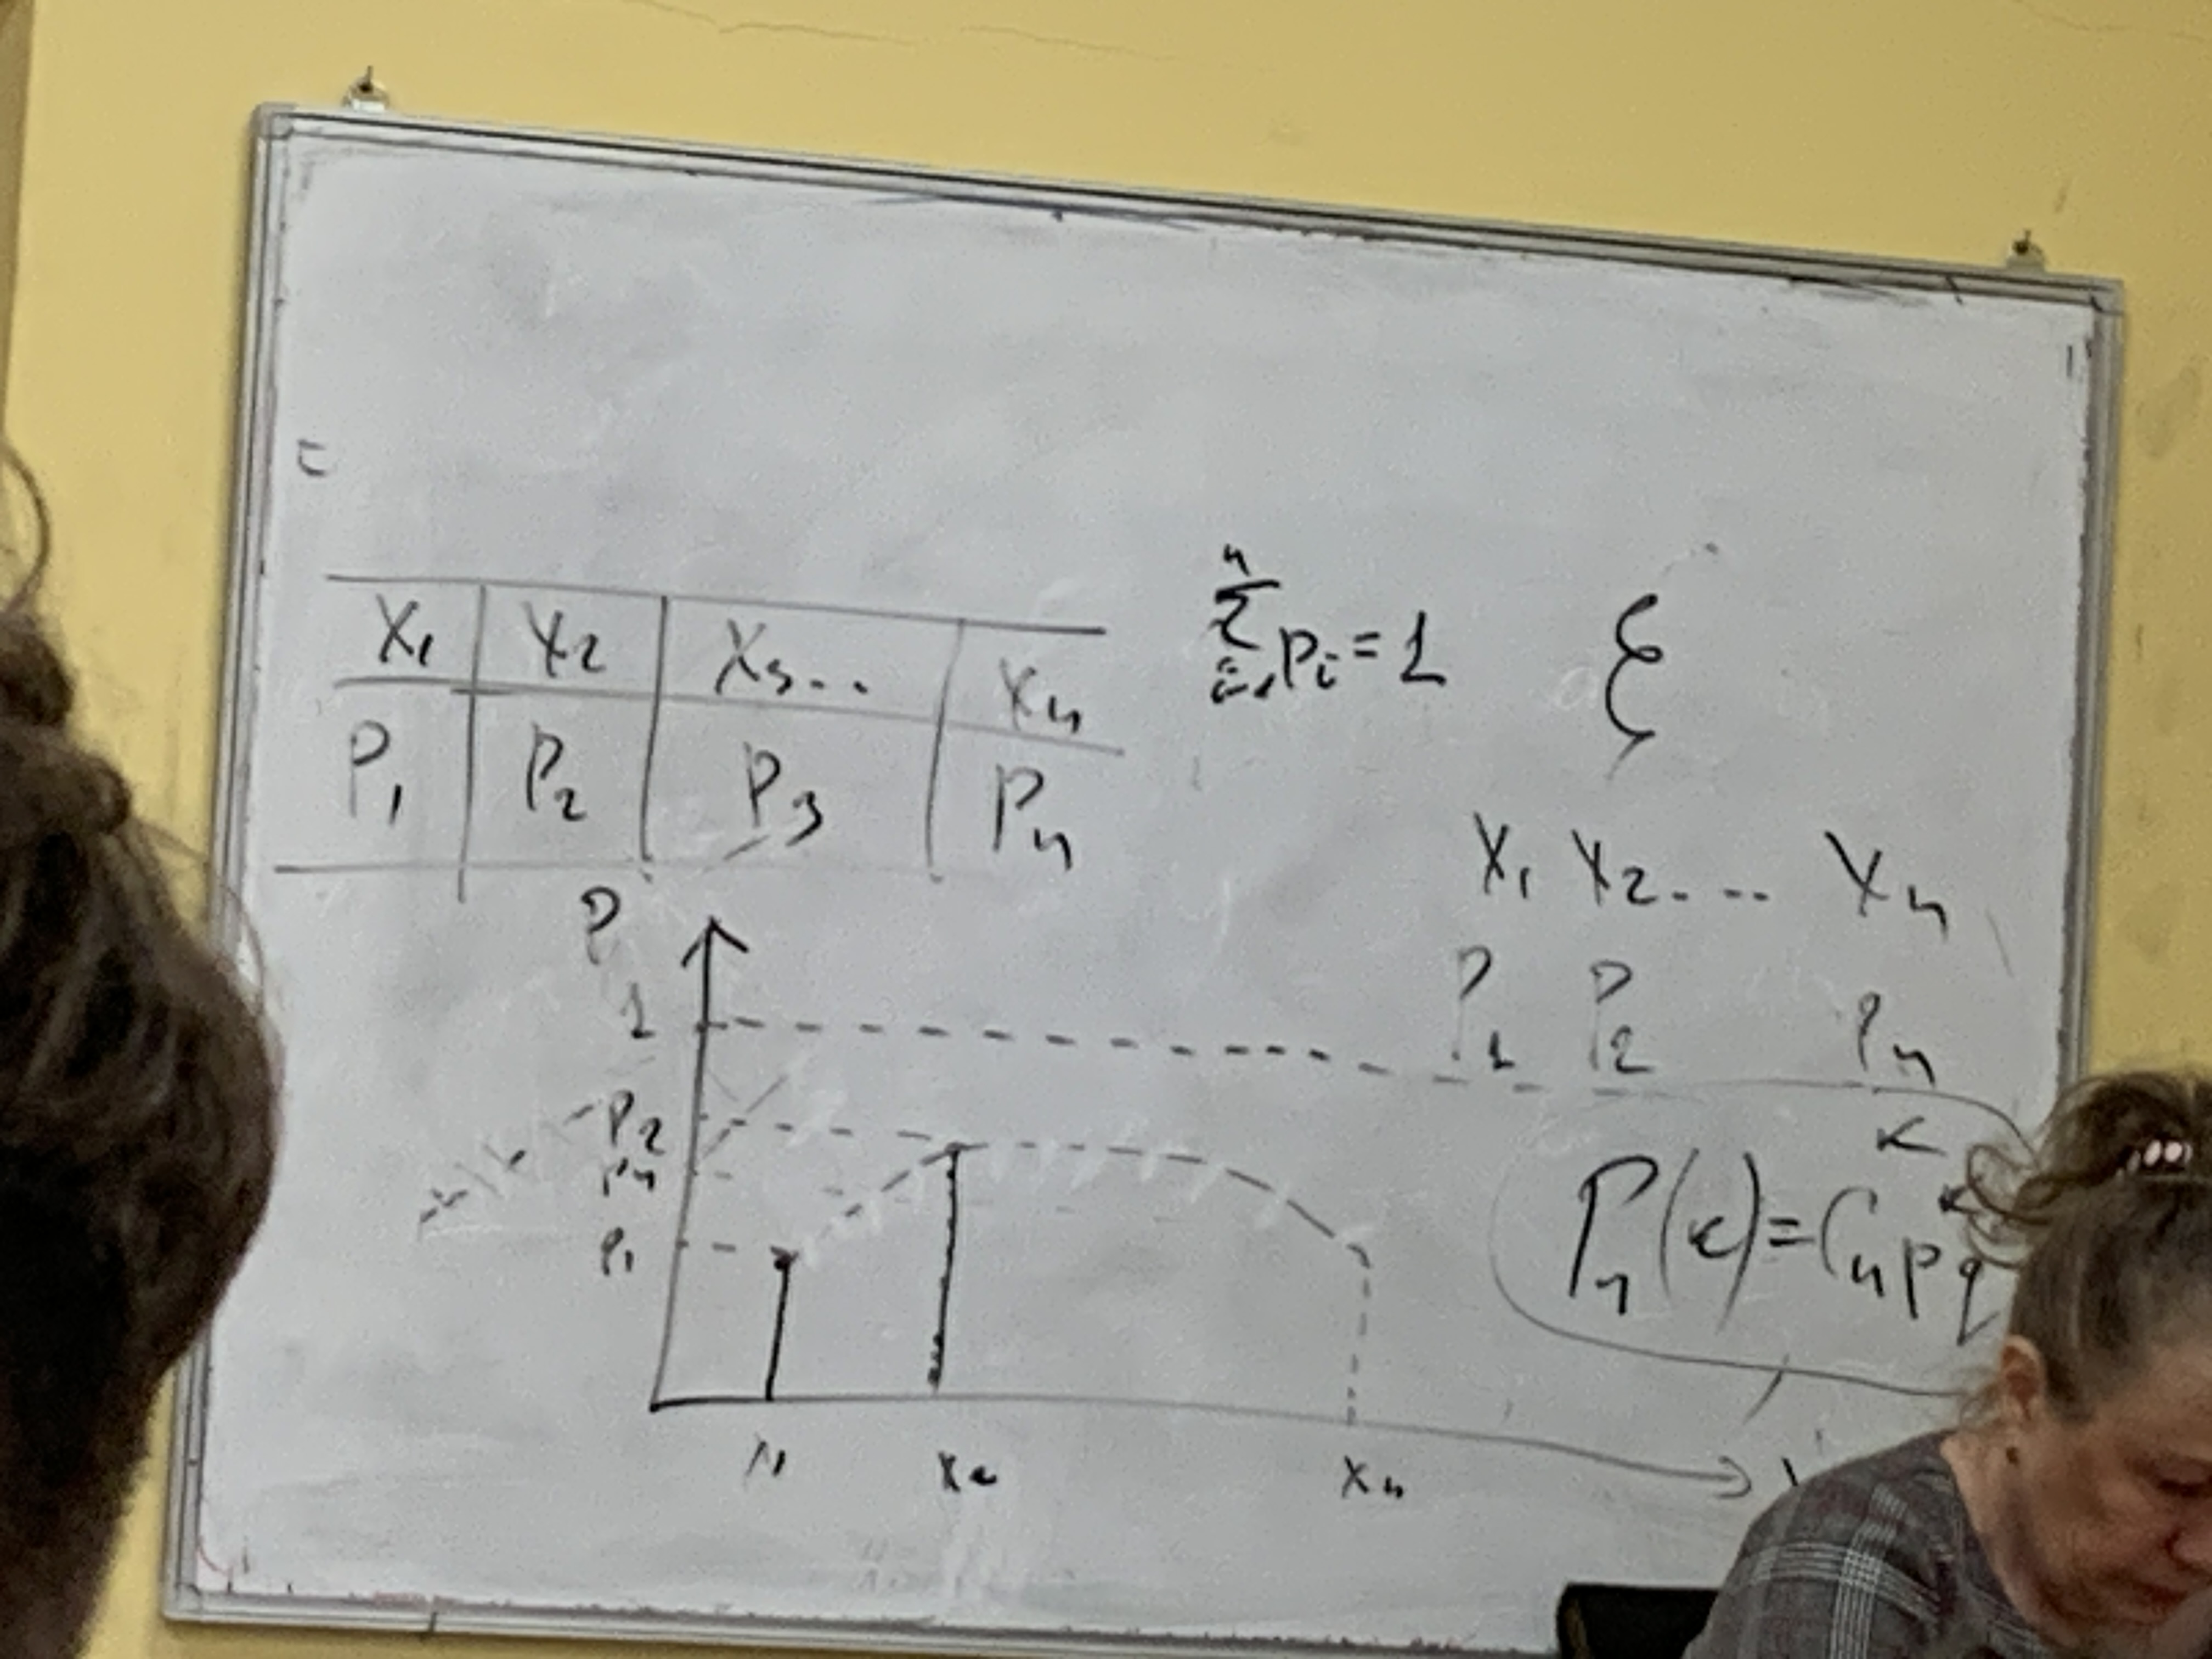 =
X₁ X₂ X₃... Xₙ
P₁ P₂ P₃ Pₙ
n
Σ pᵢ = 1
i=1
ξ
X₁ X₂.... Xₙ
P₁ P₂ Pₙ
P
1
P₂
Pₙ
P₁
x₁ x₂ xₙ
Pₙ(k)=Cₙ p q
k k